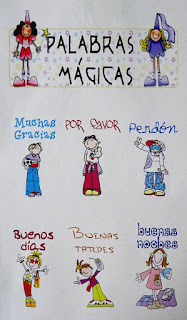 PALABRAS
MÁGICAS
Muchas
Gracias
POR FAVOR
Perdón
Buenos
días
BUENAS
TARDES
buenas
noches